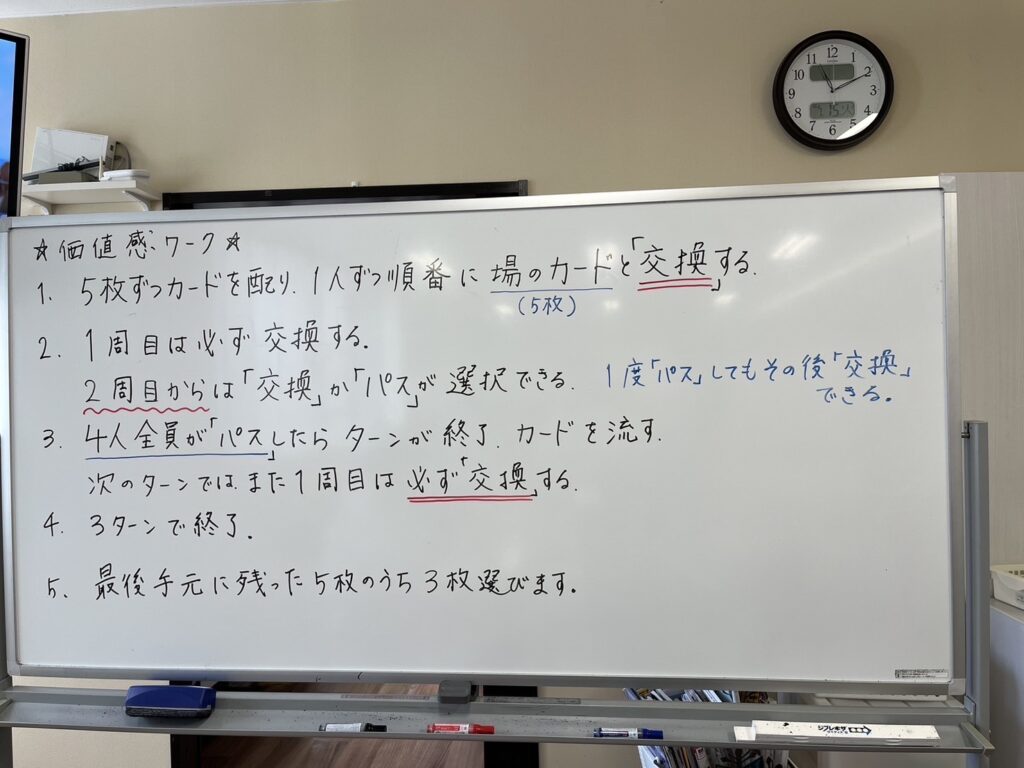 ☆価値感ワーク☆
1. 5枚ずつカードを配り、1人ずつ順番に場のカードと「交換する」.
(5枚)
2. 1周目は必ず交換する.
2周目からは「交換」か「パス」が選択できる. 1度「パス」してもその後「交換」
できる.
3. 4人全員が「パス」したらターンが終了. カードを流す.
次のターンではまた1周目は必ず「交換」する.
4. 3ターンで終了.
5. 最後手元に残った5枚のうち3枚選びます.
12
11
10
9
8
7
6
5
4
3
2